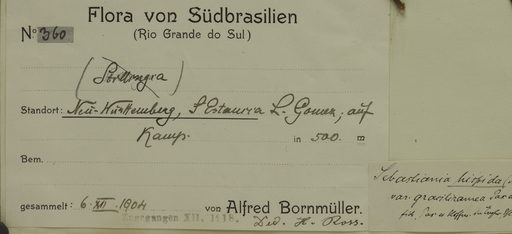 Flora von Südbrasilien
(Rio Grande do Sul)
No 360
Standort: Neu-Württemberg, S Estancia L. Gomez, auf
Kamp. in 500 m
Bem.
gesammelt: 6. XII. 1904 von Alfred Bornmüller.
Eingegangen XII. 1918. Ded. H. Ross.
Sebastiania hispida
var.